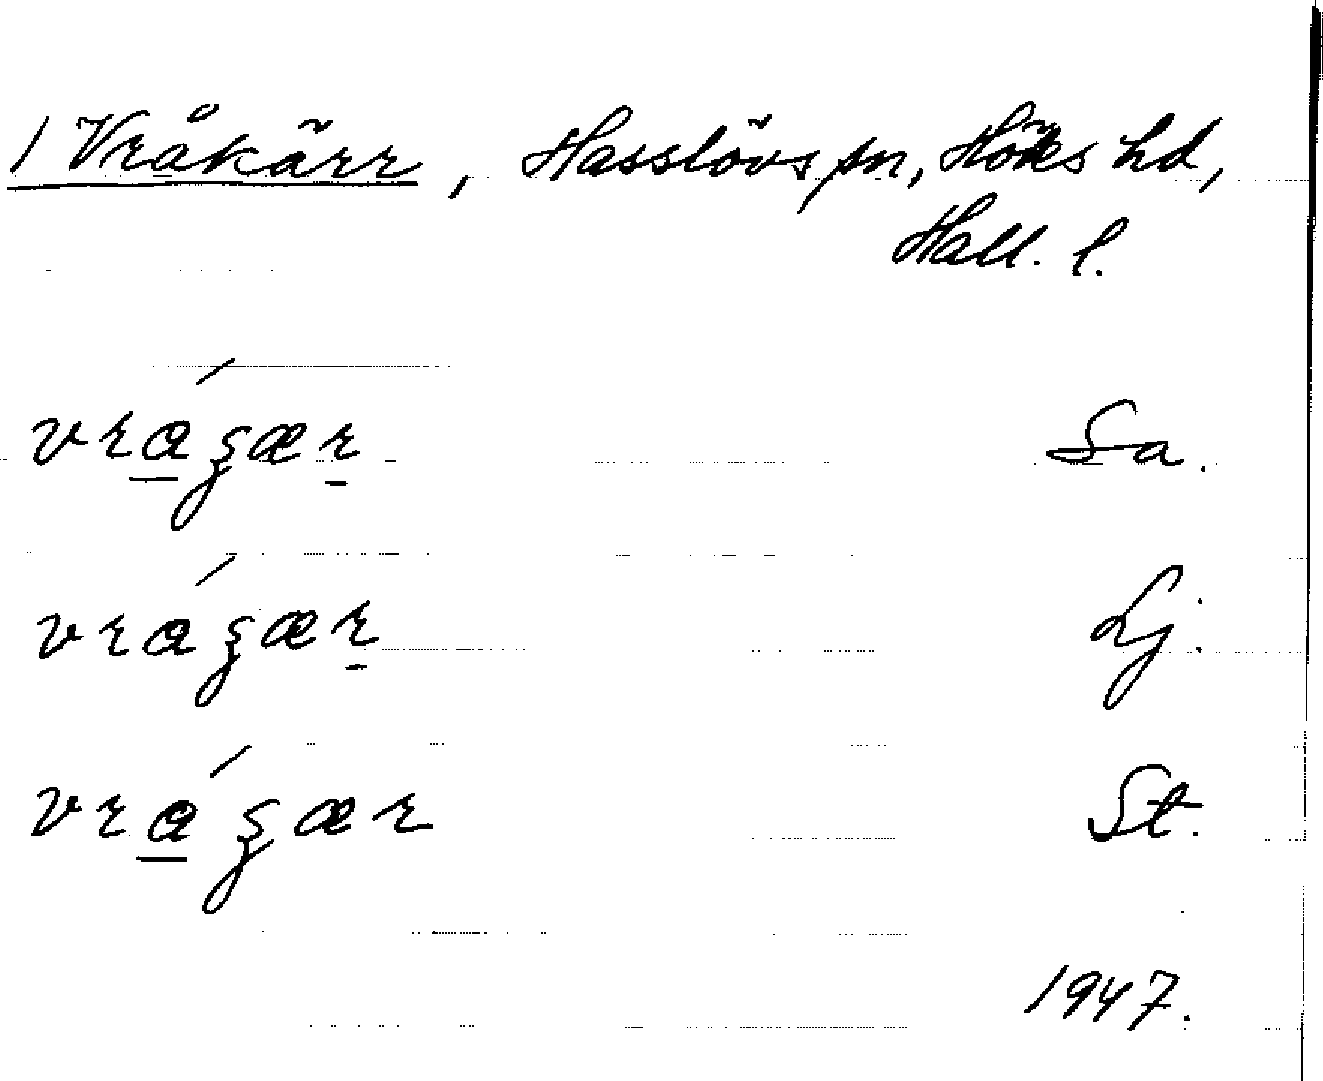 1 Vråkärr, Hasslövs sn, Höks hd,
Hall. l.
vrɑ́ʒær Sa.
vrɑ́ʒær Lj.
vrɑ́ʒær St.
1947.